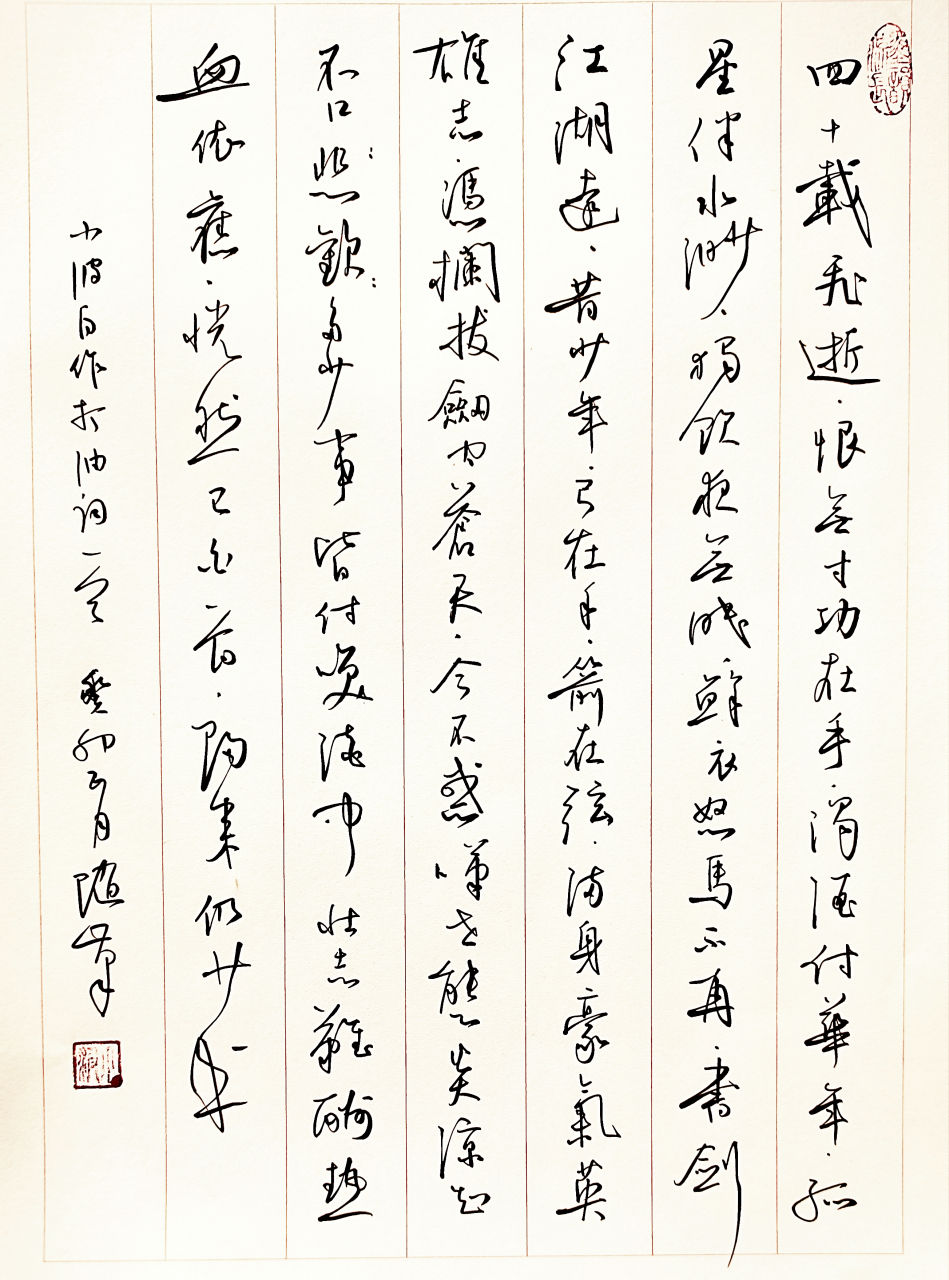 四十載飛逝.恨無寸功在手.濁酒付華年.孤
星伴水渺.獨飲夜無眠.鮮衣怒馬不再.書劍
江湖遠.昔少年弓在手.箭在弦.滿身豪氣英
雄志.憑欄拔劍問蒼天.今不惑嘆世態炎涼知
不口悲:歡:多少事皆付笑談中 壯志難酬熱
血依舊.恍然已白首.歸來仍少年
小波自作打油詞一首 癸卯正月隨筆